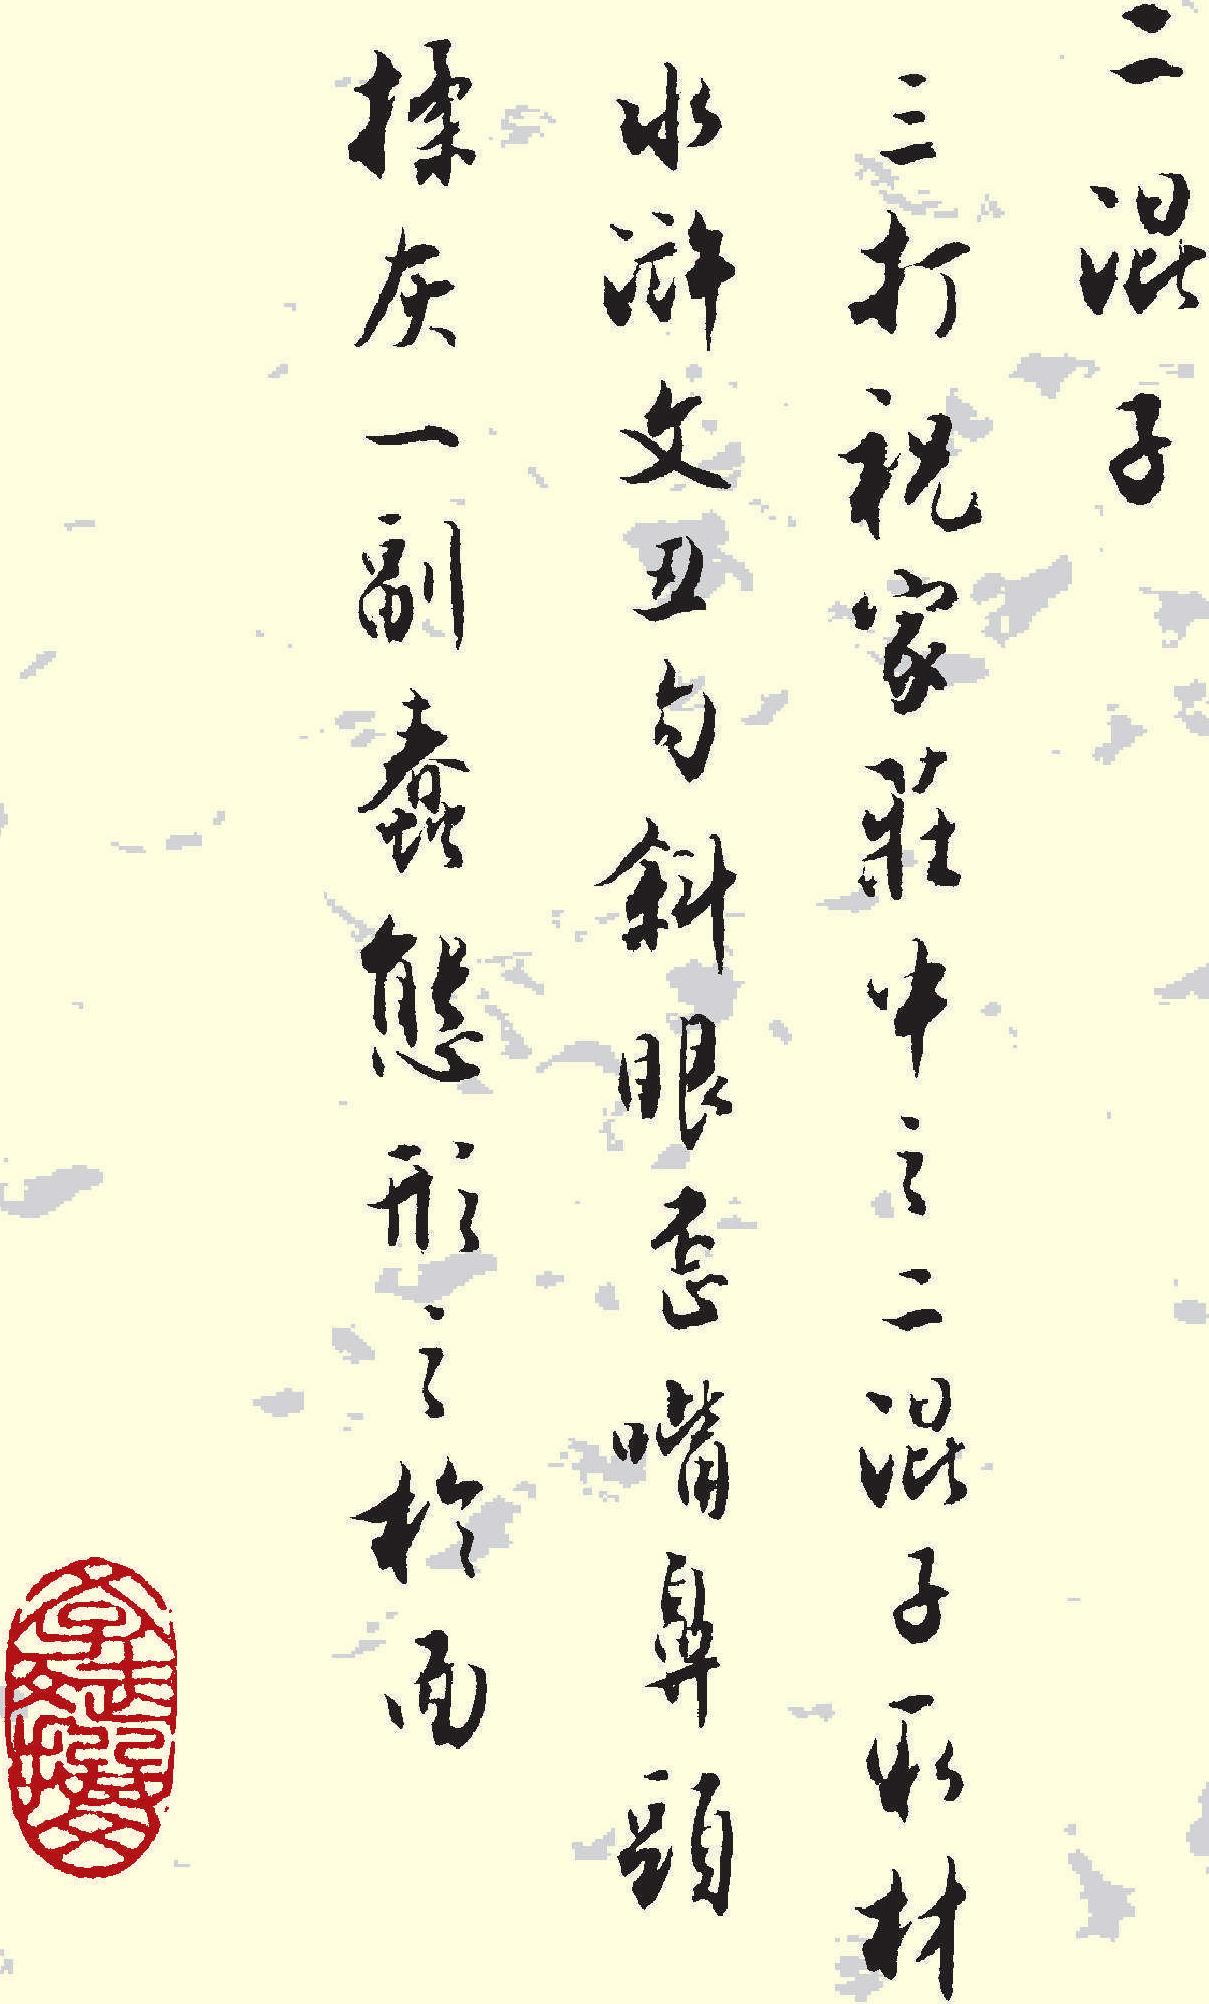 二混子
三打祝家莊中之二混子取材
水滸文丑勾斜眼歪嘴鼻頭
揉灰一副蠢態形之於面